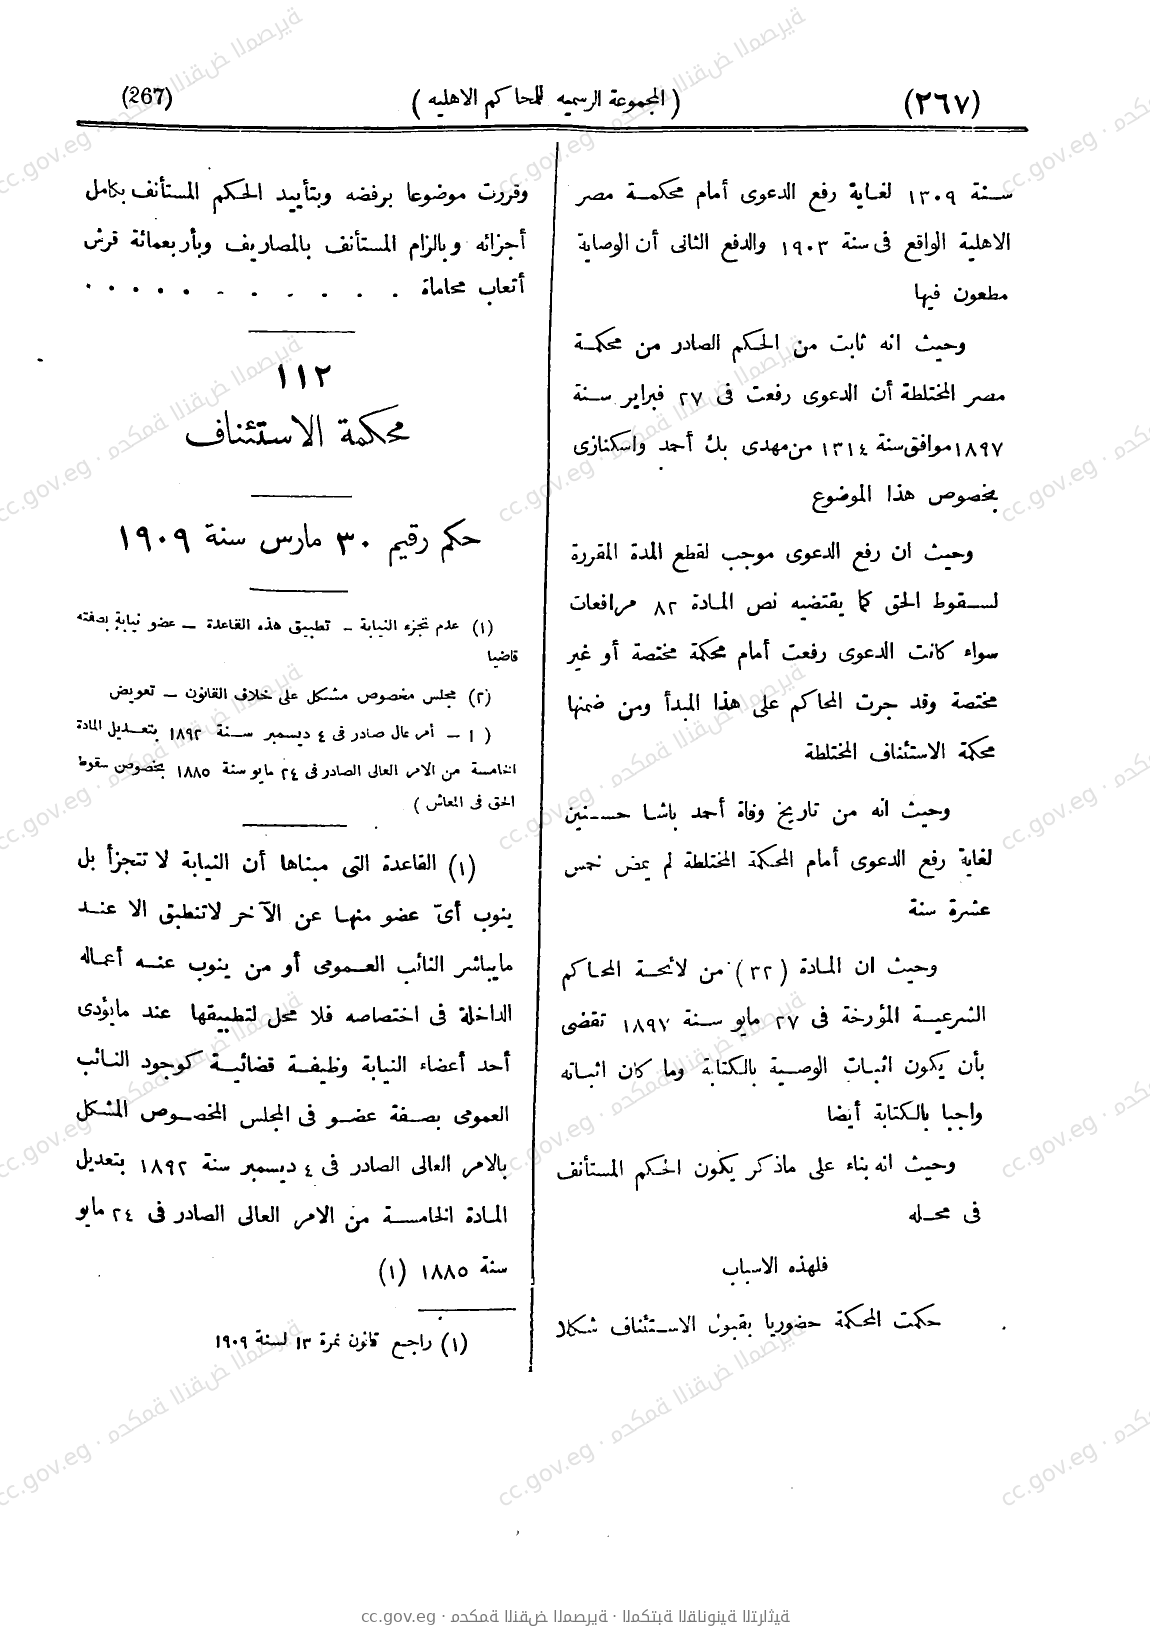 (٢٦٧)
(المجموعة الرسميه للمحاكم الاهليه)
(267)
سنة ١٣٠٩ لغاية رفع الدعوى أمام محكمة مصر
الاهلية الواقع فى سنة ١٩٠٣ والدفع الثانى أن الوصاية
مطعون فيها
وحيث انه ثابت من الحكم الصادر من محكمة
مصر المختلطة أن الدعوى رفعت فى ٢٧ فبراير سنة
١٨٩٧ موافق سنة ١٣١٤ من مهدى بك أحمد واسكنازى
بخصوص هذا الموضوع
وحيث ان رفع الدعوى موجب لقطع المدة المقررة
لسقوط الحق كما يقتضيه نص المادة ٨٢ مرافعات
سواء كانت الدعوى رفعت أمام محكمة مختصة أو غير
مختصة وقد جرت المحاكم على هذا المبدأ ومن ضمنها
محكمة الاستئناف المختلطة
وحيث انه من تاريخ وفاة أحمد باشا حسنين
لغاية رفع الدعوى أمام المحكمة المختلطة لم يمض خمس
عشرة سنة
وحيث ان المادة (٣٢) من لائحة المحاكم
الشرعية المؤرخة فى ٢٧ مايو سنة ١٨٩٧ تقضى
بأن يكون اثبات الوصية بالكتابة وما كان اثباته
واجبا بالكتابة أيضا
وحيث انه بناء على ماذكر يكون الحكم المستأنف
فى محله
فلهذه الاسباب
حكمت المحكمة حضوريا بقبول الاستئناف شكلا
وقررت موضوعا برفضه وبتأييد الحكم المستأنف بكامل
أجزائه وبالزام المستأنف بالمصاريف وبأربعمائة قرش
أتعاب محاماة . . . . . . . . . . .
١١٢
محكمة الاستئناف
حكم رقيم ٣٠ مارس سنة ١٩٠٩
(١) عدم تجزء النيابة – تطبيق هذه القاعدة – عضو نيابة بصفته
قاضيا
(٢) مجلس مخصوص مشكل على خلاف القانون – تعويض
( ١ – أمر عال صادر فى ٤ ديسمبر سنة ١٨٩٢ بتعديل المادة
الخامسة من الامر العالى الصادر فى ٢٤ مايو سنة ١٨٨٥ بخصوص سقوط
الحق فى المعاش )
(١) القاعدة التى مبناها أن النيابة لا تتجزأ بل
ينوب أىّ عضو منها عن الآخر لاتنطبق الا عند
مايباشر النائب العمومى أو من ينوب عنه أعماله
الداخلة فى اختصاصه فلا محل لتطبيقها عند مايؤدى
أحد أعضاء النيابة وظيفة قضائية كوجود النائب
العمومى بصفة عضو فى المجلس المخصوص المشكل
بالامر العالى الصادر فى ٤ ديسمبر سنة ١٨٩٢ بتعديل
المادة الخامسة من الامر العالى الصادر فى ٢٤ مايو
سنة ١٨٨٥ (١)
(١) راجع قانون نمرة ١٣ لسنة ١٩٠٩
cc.gov.eg · محكمة النقض المصرية · المكتبة القانونية التراثية